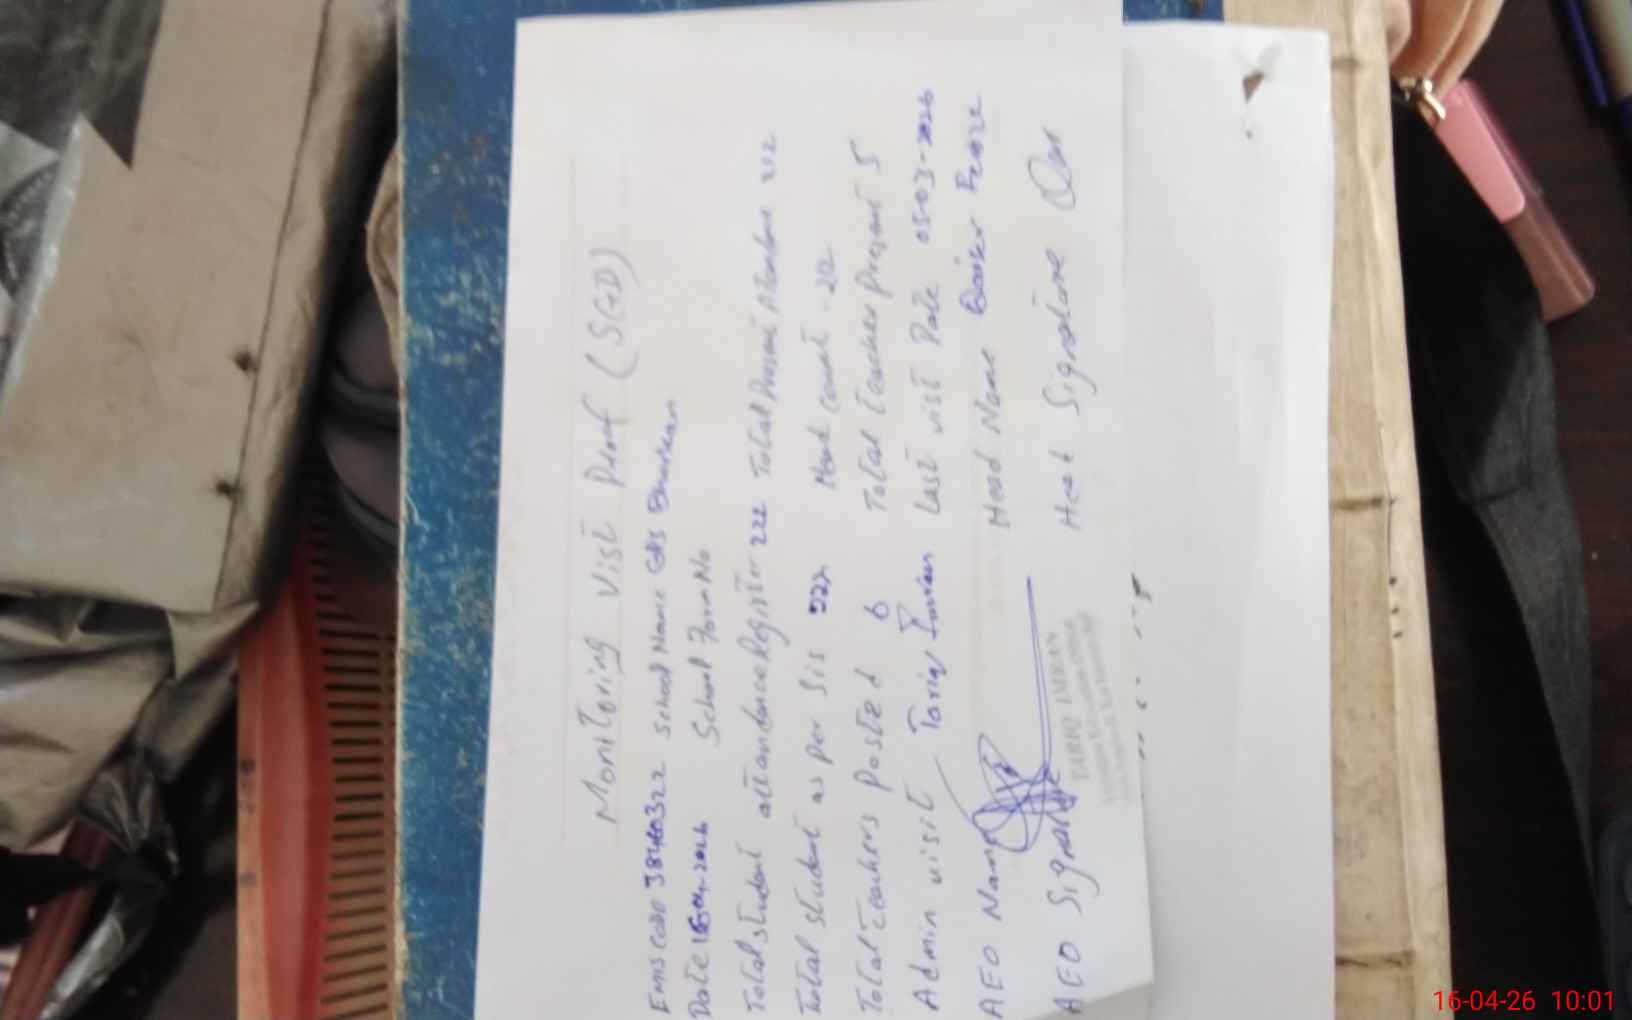 Monitoring Vist Prof (SGD)
Ems code 38440322 School Name GPS
Date 16-04-2026 School Form No
Total student attandance Register 222 Total Present Attendance 212
Total student as per Sis 222 Head count - 212
Total teachers posted 6 Total Teacher Present 5
Admin visit Last vist Date 05-03-2026
AEO Name Tariq Imran Head Name
AEO Signature Head Signature
TARIQ IMRAN
16-04-26 10:01